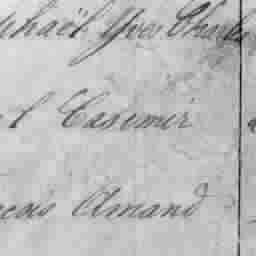 phaël Yves Charles
l Casimir
çois Amand